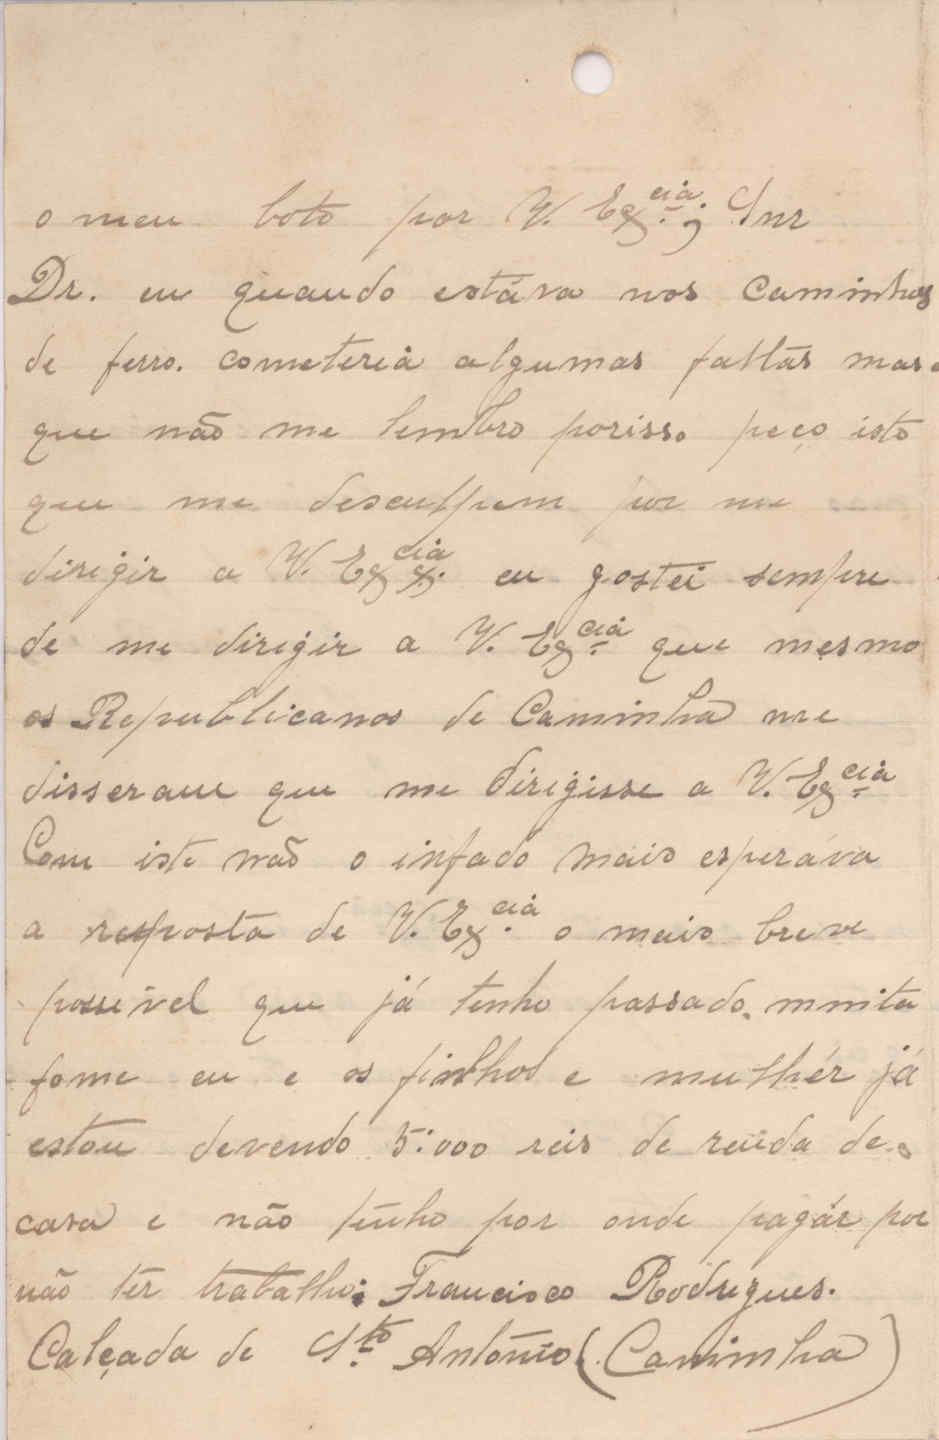 o meu boto por V. Exª cia; Snr
Dr. eu quando estáva nos Caminhos
de ferro. cometeria algumas faltas mas
que não me lembro porisso peço isto
que me desculpem por me
dirigir a V. Ex.cia eu gostei sempre
de me dirigir a V. Ex.cia que mesmo
os Republicanos de Caminha me
disseram que me dirigisse a V. Ex.cia
Com iste não o infado mais esperáva
a resposta de V. Ex.cia o mais breve
possivel que já tenho passado muita
fome eu e os finlhos e mulhér já
estou devendo 5:000 reis de renda de
casa e não tenho por onde pagár por
não têr trabalho; Francisco Rodrigues.
Calçada de Sto António (Caminha)